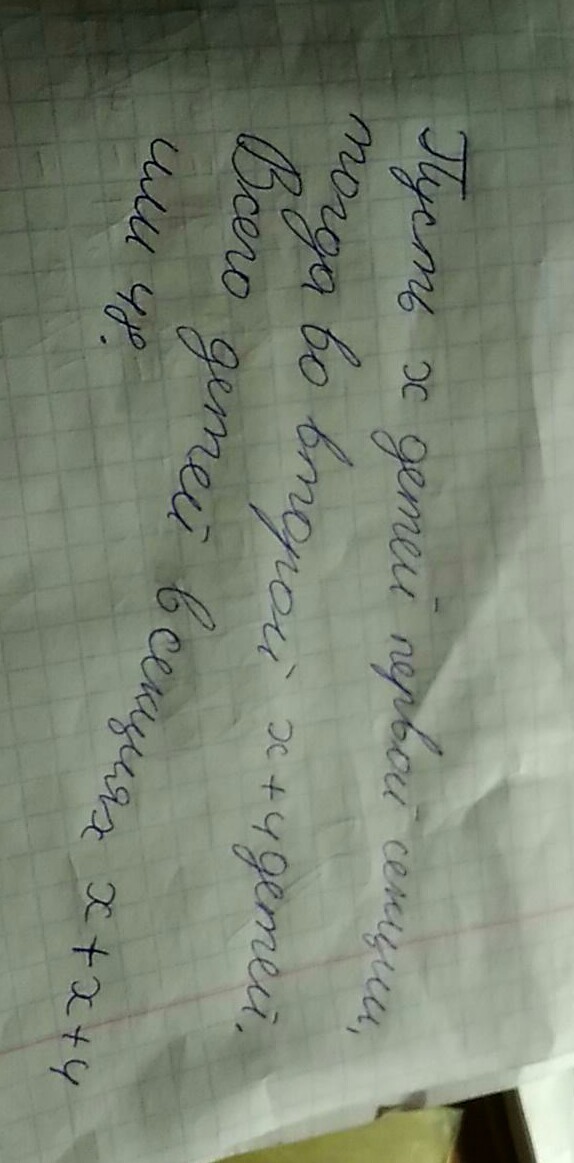 Пусть х детей первой секции,
тогда во второй х+4детей.
Всего детей в секциях х+х+4
или